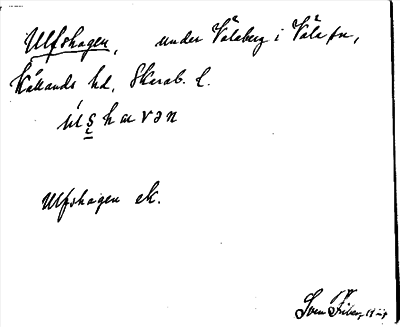 Ulfshagen, under Våleberg i Våla sn,
Kållands hd, Skarab. l.
ú l s̱ h a v ə n
Ulfshagen ek.
Sven Friberg